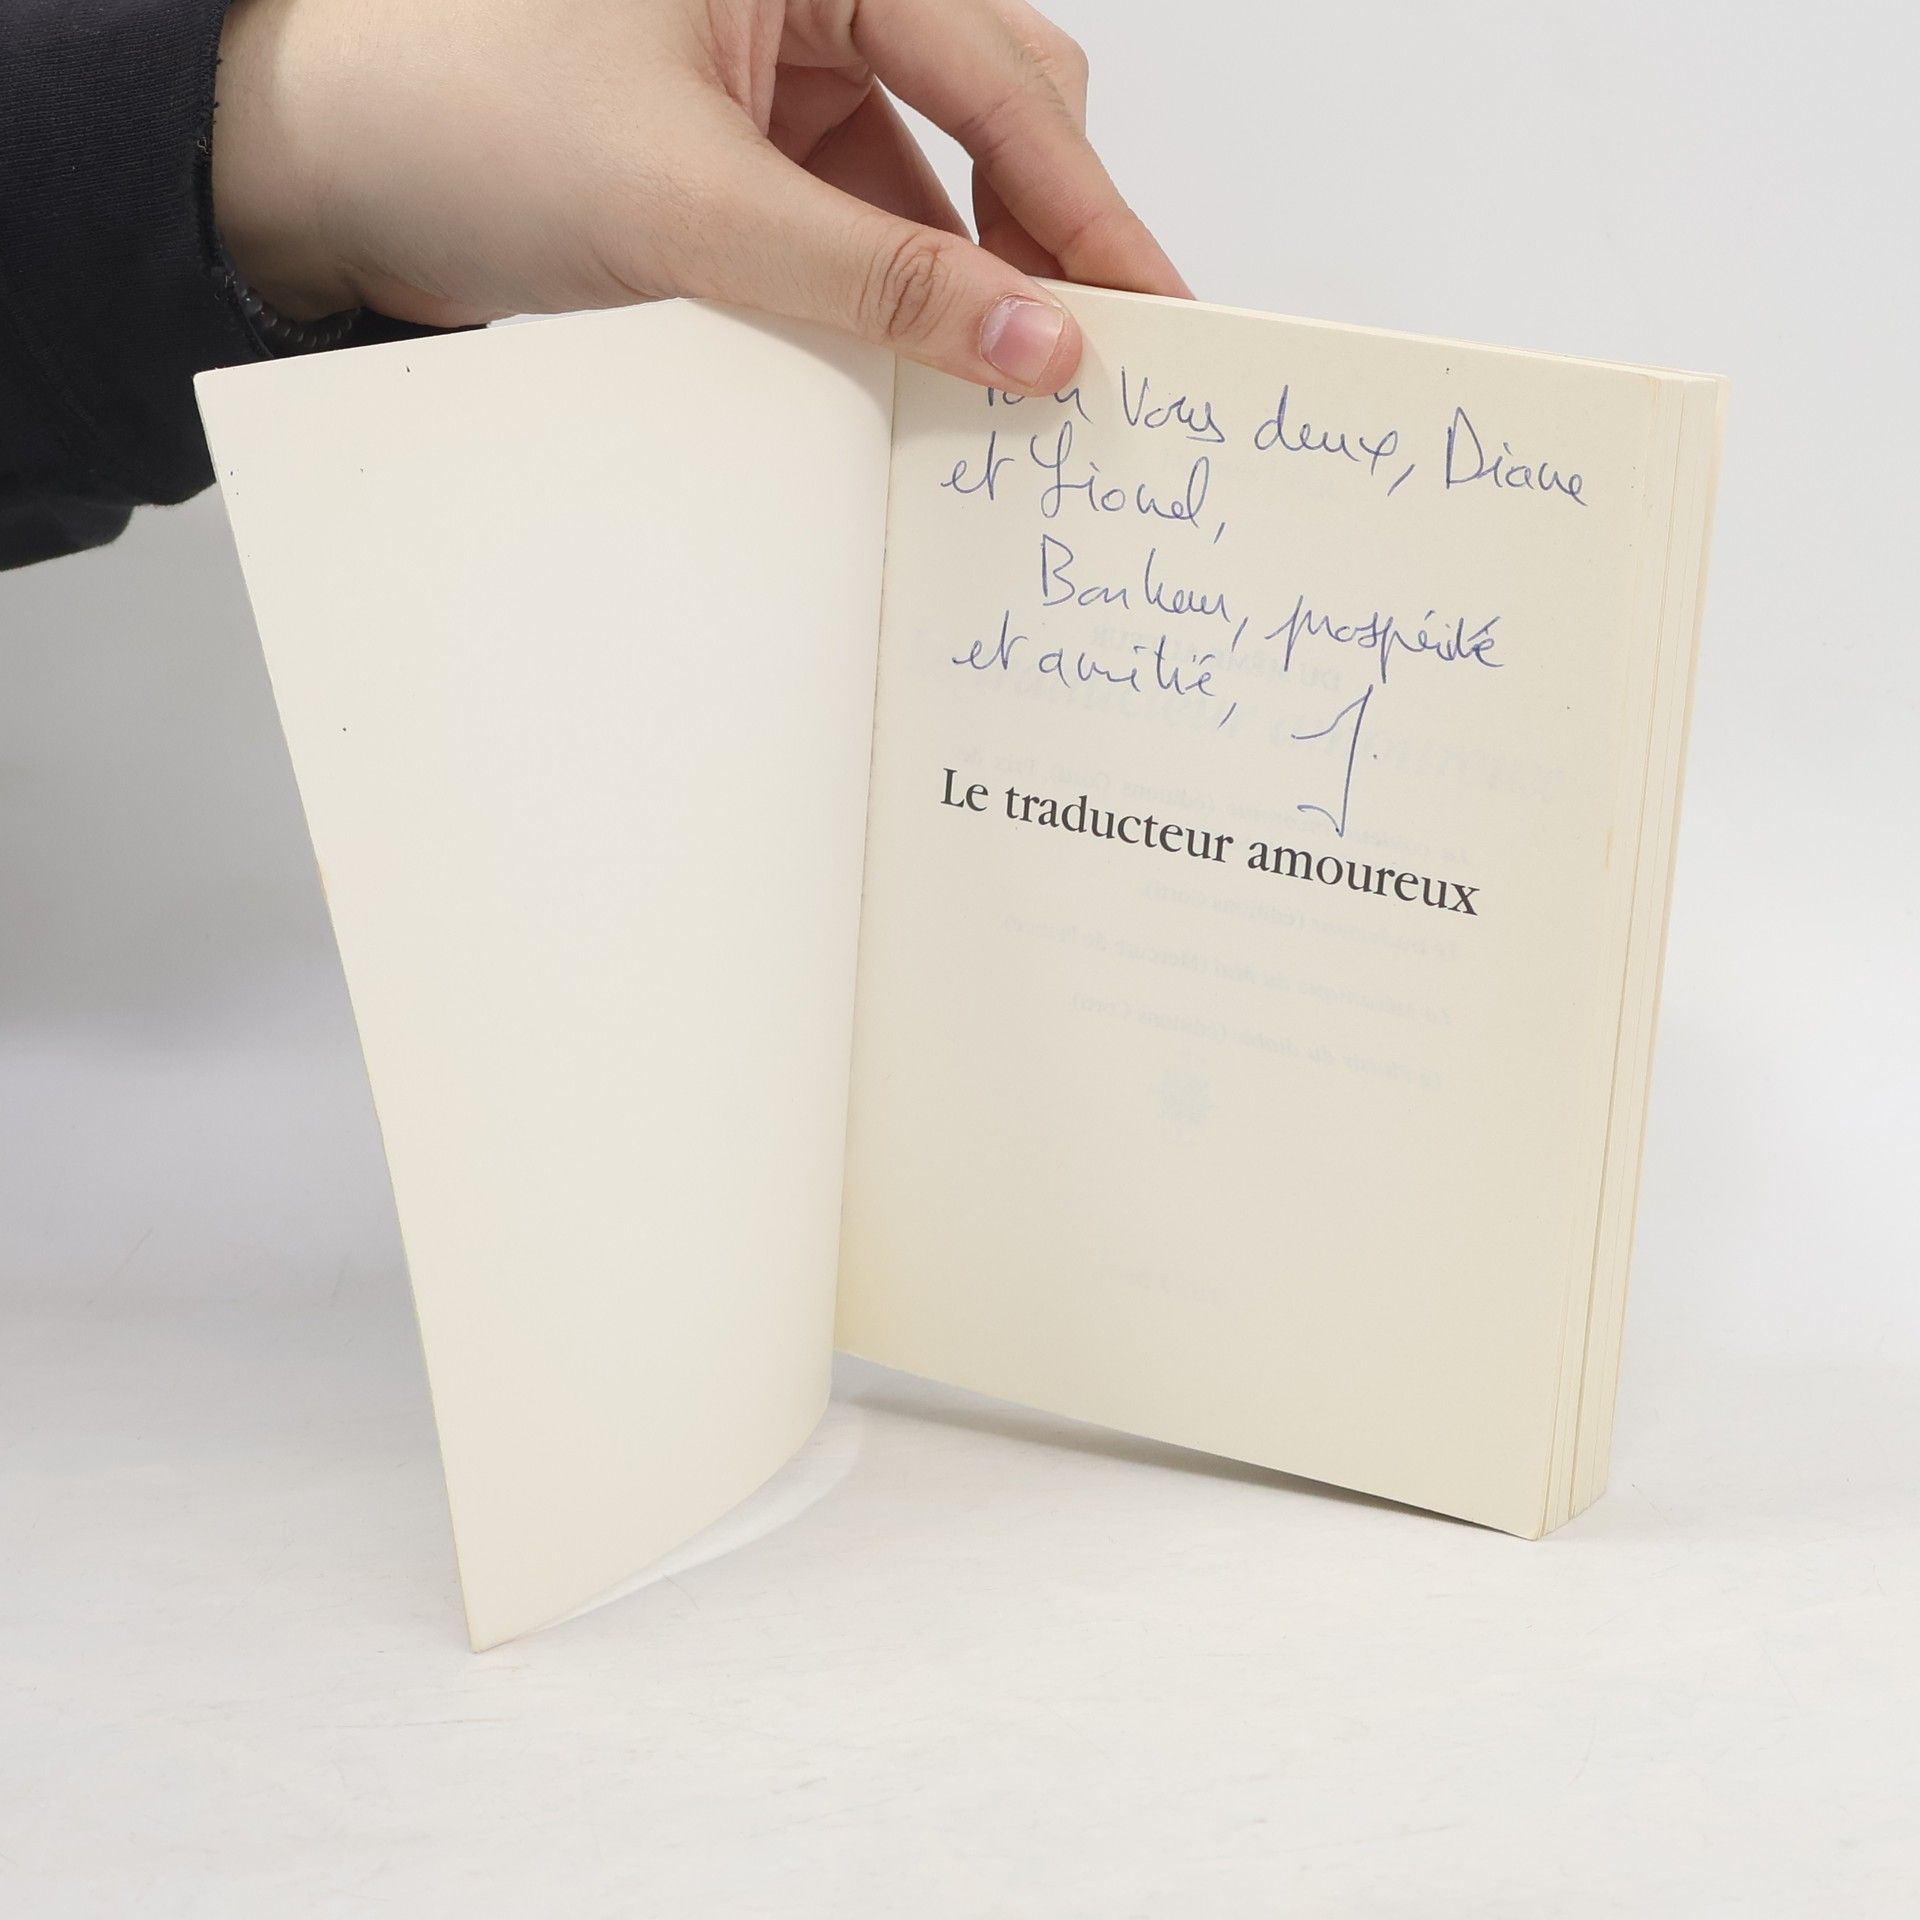 Pour Vous deux, Diane
et Lionel,
Bonheur, prospérité
et amitié, J.
Le traducteur amoureux